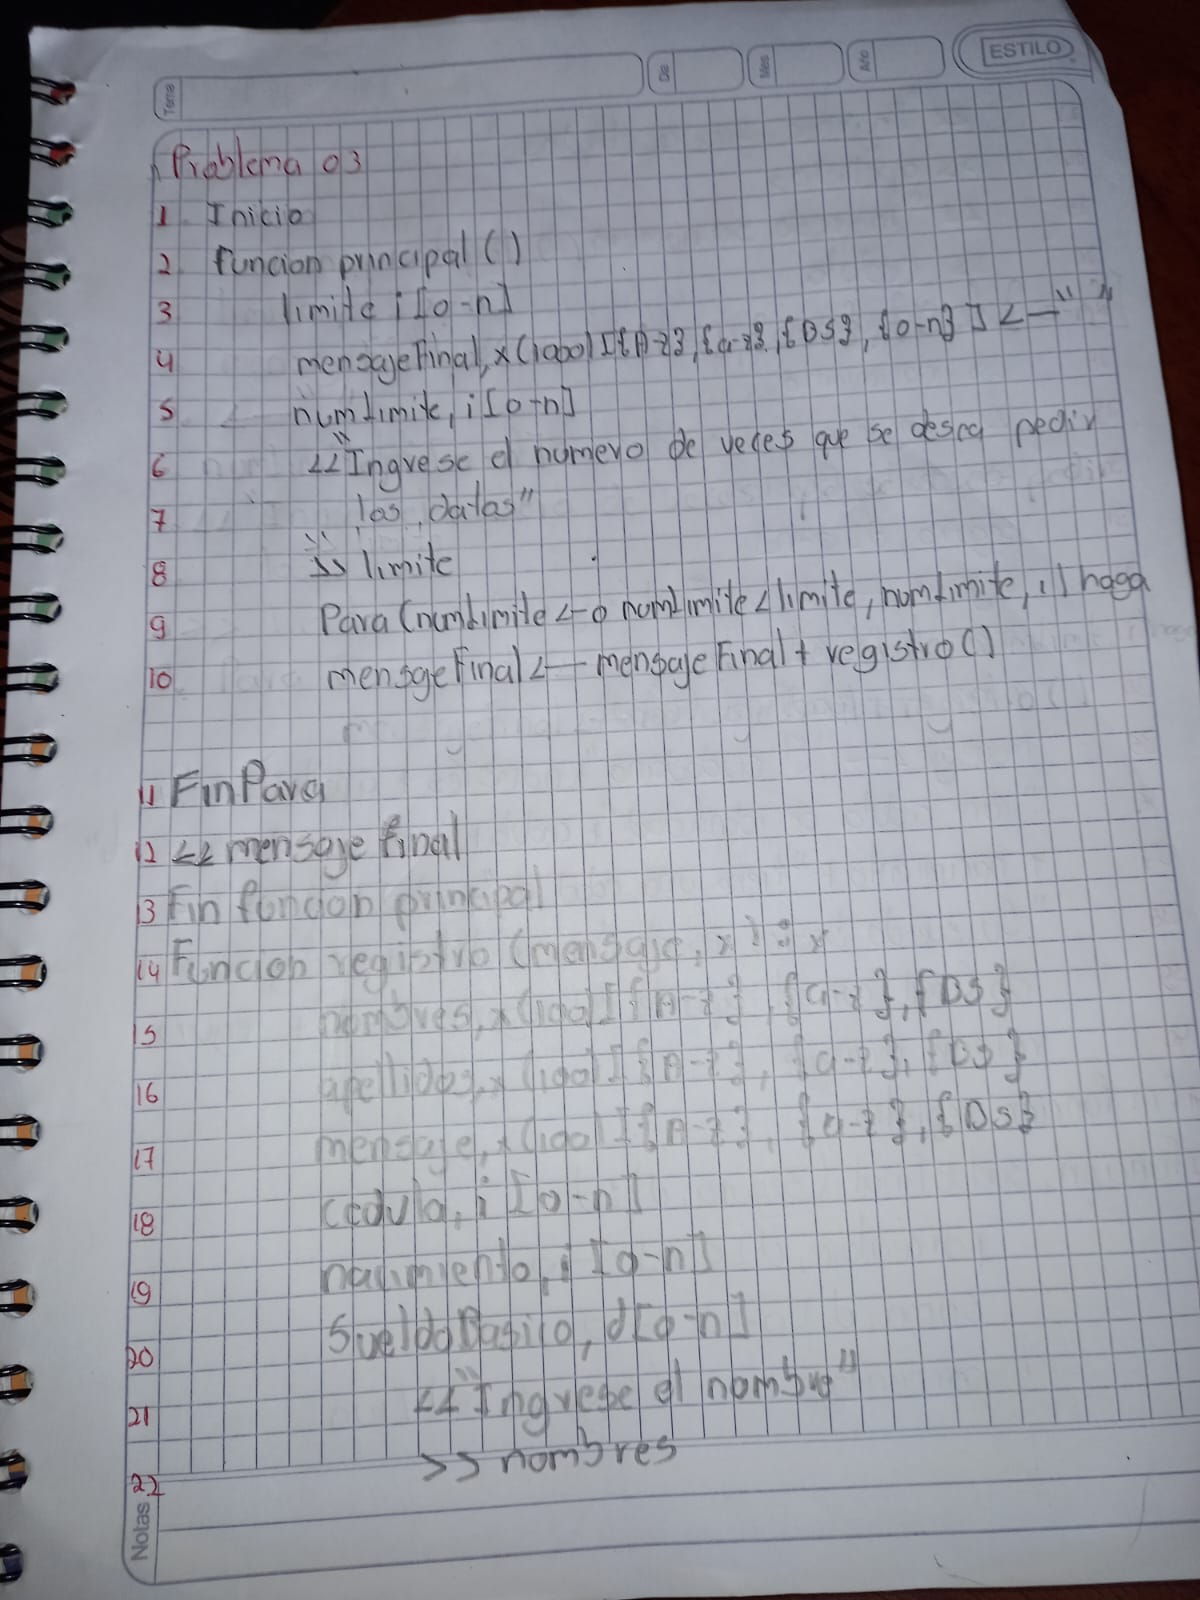 Tema
De
Mes
Año
ESTILO
Problema 03
1 Inicio
2 funcion principal ()
3 limite i [0-n]
4 mensajeFinal, x (1000) [{A-z}, {a-z}, {DS}, {0-n}] <— " "
5 numLimite, i [0-n]
6 << "Ingrese el numero de veces que se desea pedir
7 los datos"
8 >> limite
9 Para (numLimite <- 0 numLimite < limite, numLimite, 1) haga
10 mensajeFinal <— mensajeFinal + registro ()
11 Fin Para
12 << mensaje final
13 Fin funcion principal
14 Funcion registro (mensaje, x) : x
15 nombres, x (100) [{A-z}, {a-z}, {DS}
16 apellidos, x (100) [{A-z}, {a-z}, {DS}
17 mensaje, x (100) [{A-z}, {a-z}, {DS}
18 cedula, i [0-n]
19 nacimiento, i [0-n]
20 SueldoBasico, d [0-n]
21 << "Ingrese el nombre"
22 >> nombres
Notas